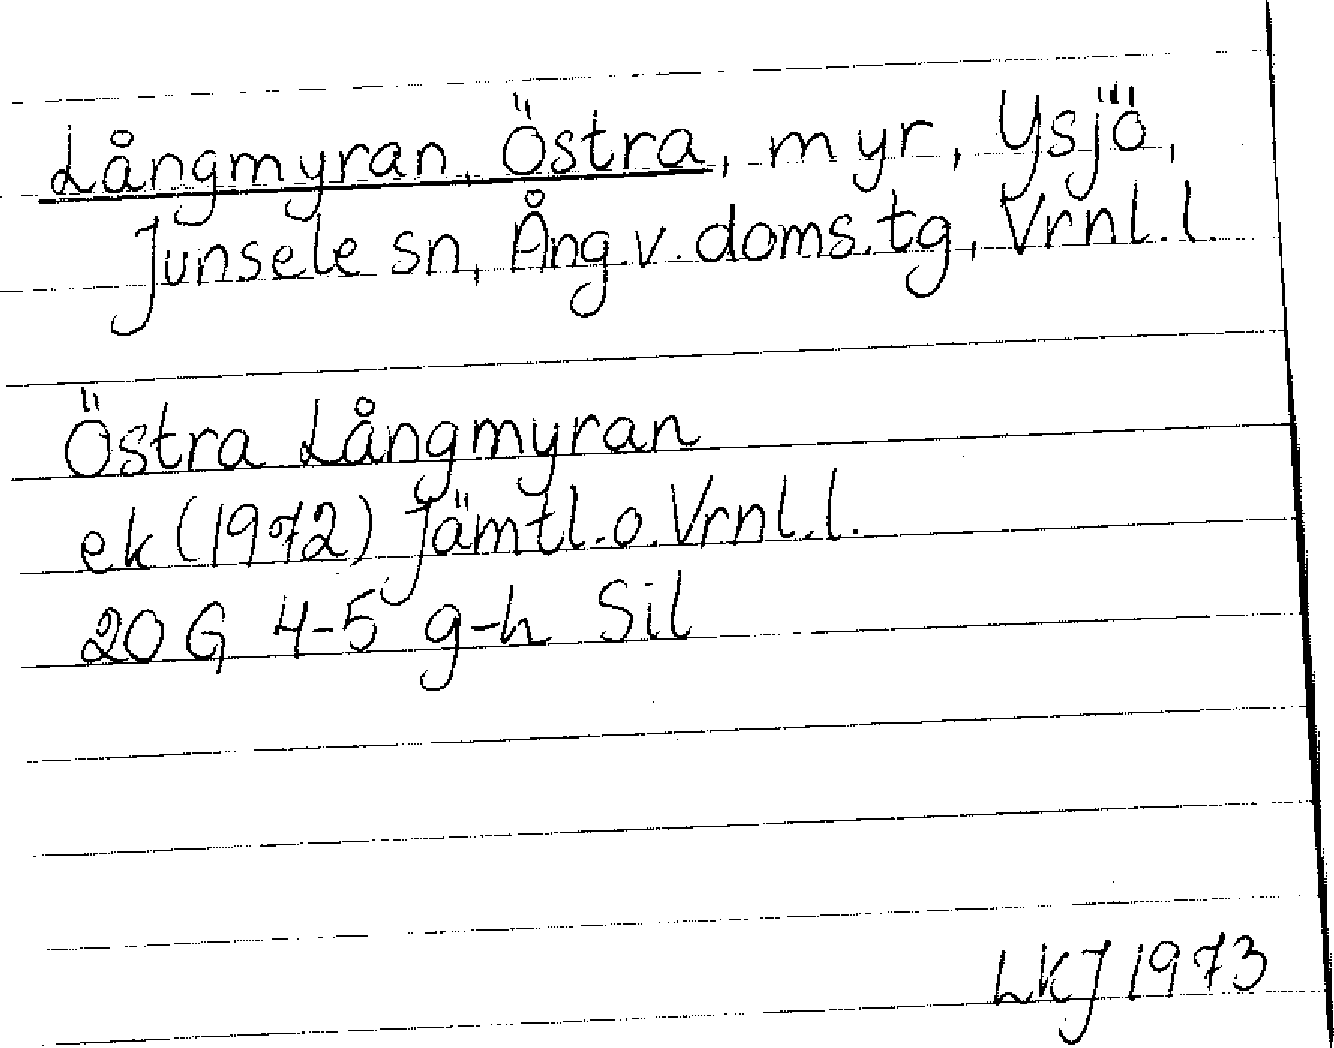 Långmyran, Östra, myr, Ysjö,
Junsele sn, Ång.v. doms.tg, Vrnl.l.
Östra Långmyran
ek (1972) Jämtl.o.Vrnl.l.
20 G 4-5 g-h Sil
LKJ 1973